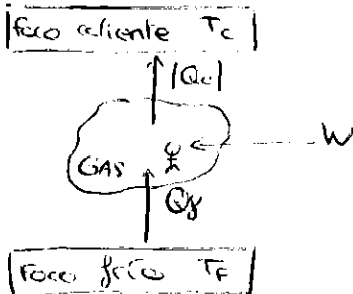 foco caliente Tc
|Qc|
W
GAS
Qf
Foco frío TF